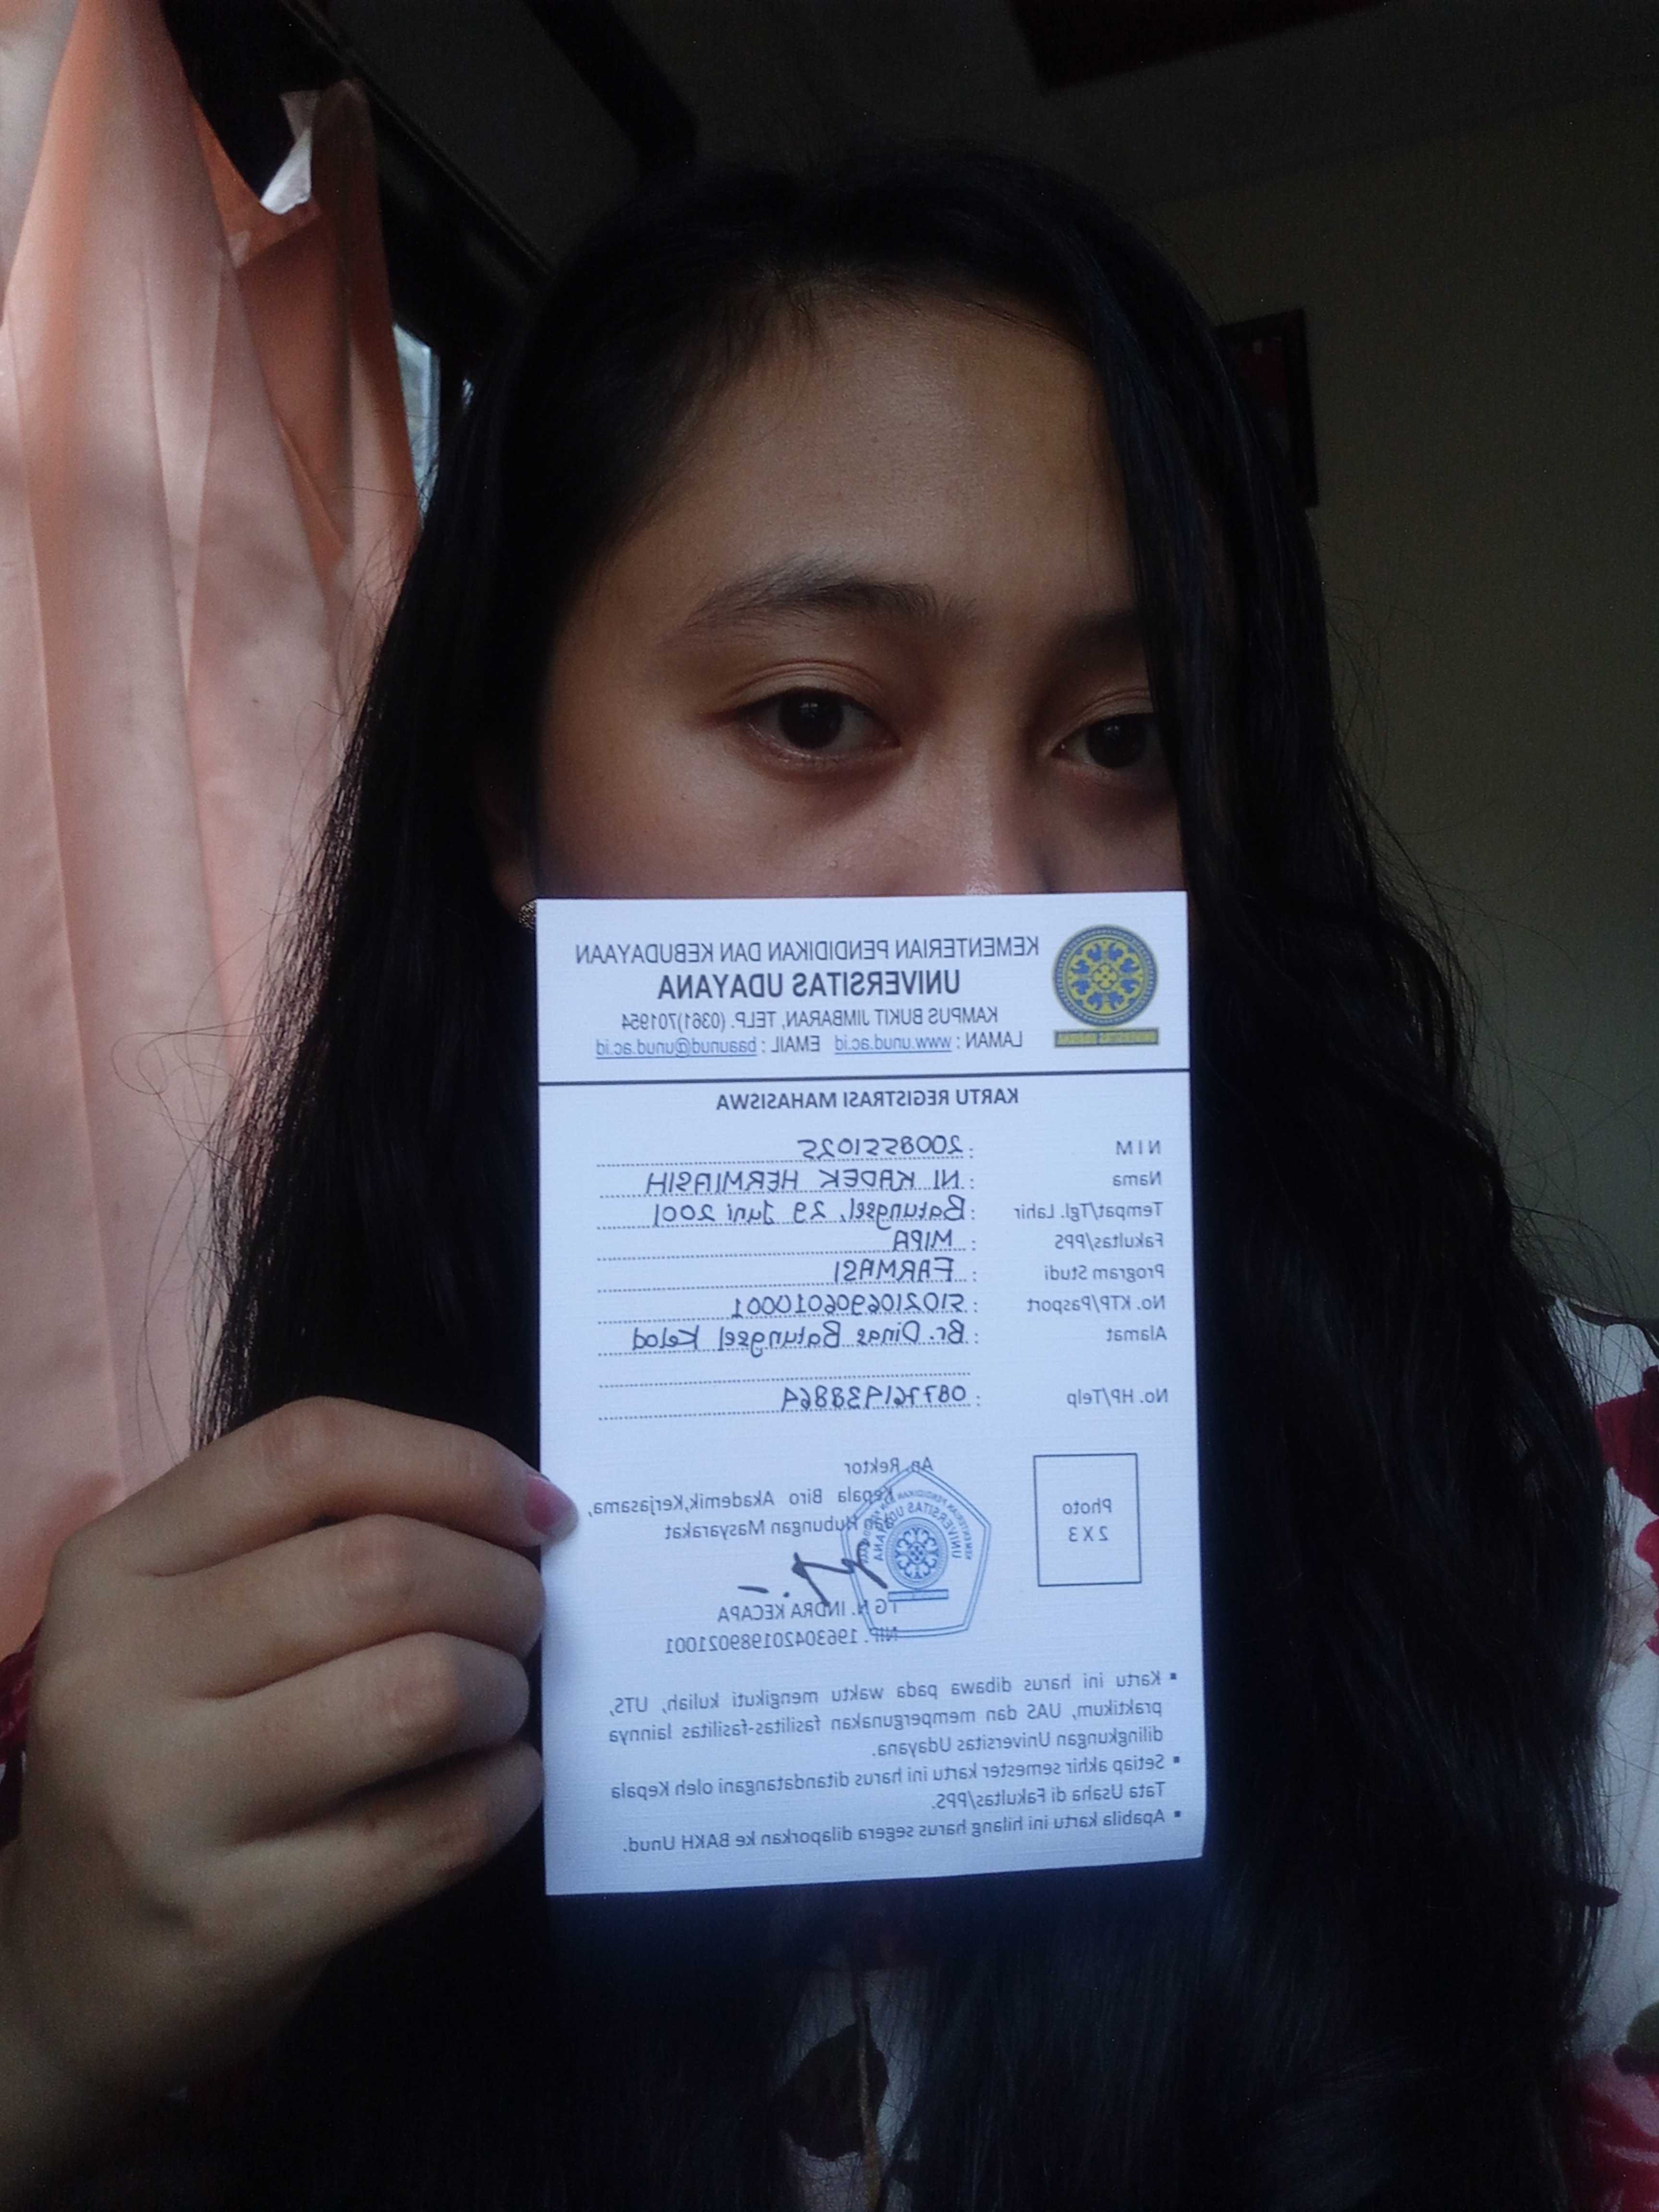 KEMENTERIAN PENDIDIKAN DAN KEBUDAYAAN
UNIVERSITAS UDAYANA
KAMPUS BUKIT JIMBARAN, TELP. (0361)701954
LAMAN : www.unud.ac.id EMAIL : baaunud@unud.ac.id
UNIVERSITAS UDAYANA
KARTU REGISTRASI MAHASISWA
NIM : 2008551025
Nama : NI KADEK HERMIASIH
Tempat/Tgl. Lahir : Batungsel, 29 Juni 2001
Fakultas/PPS : MIPA
Program Studi : FARMASI
No. KTP/Pasport : 5102106906010001
Alamat : Br. Dinas Batungsel Kelod
No. HP/Telp : 087761938864
Photo
2 X 3
An. Rektor
Kepala Biro Akademik,Kerjasama,
dan Hubungan Masyarakat
UNIVERSITAS UDAYANA
I G N. INDRA KECAPA
NIP. 196304201989021001
▪ Kartu ini harus dibawa pada waktu mengikuti kuliah, UTS,
praktikum, UAS dan mempergunakan fasilitas-fasilitas lainnya
dilingkungan Universitas Udayana.
▪ Setiap akhir semester kartu ini harus ditandatangani oleh Kepala
Tata Usaha di Fakultas/PPS.
▪ Apabila kartu ini hilang harus segera dilaporkan ke BAKH Unud.